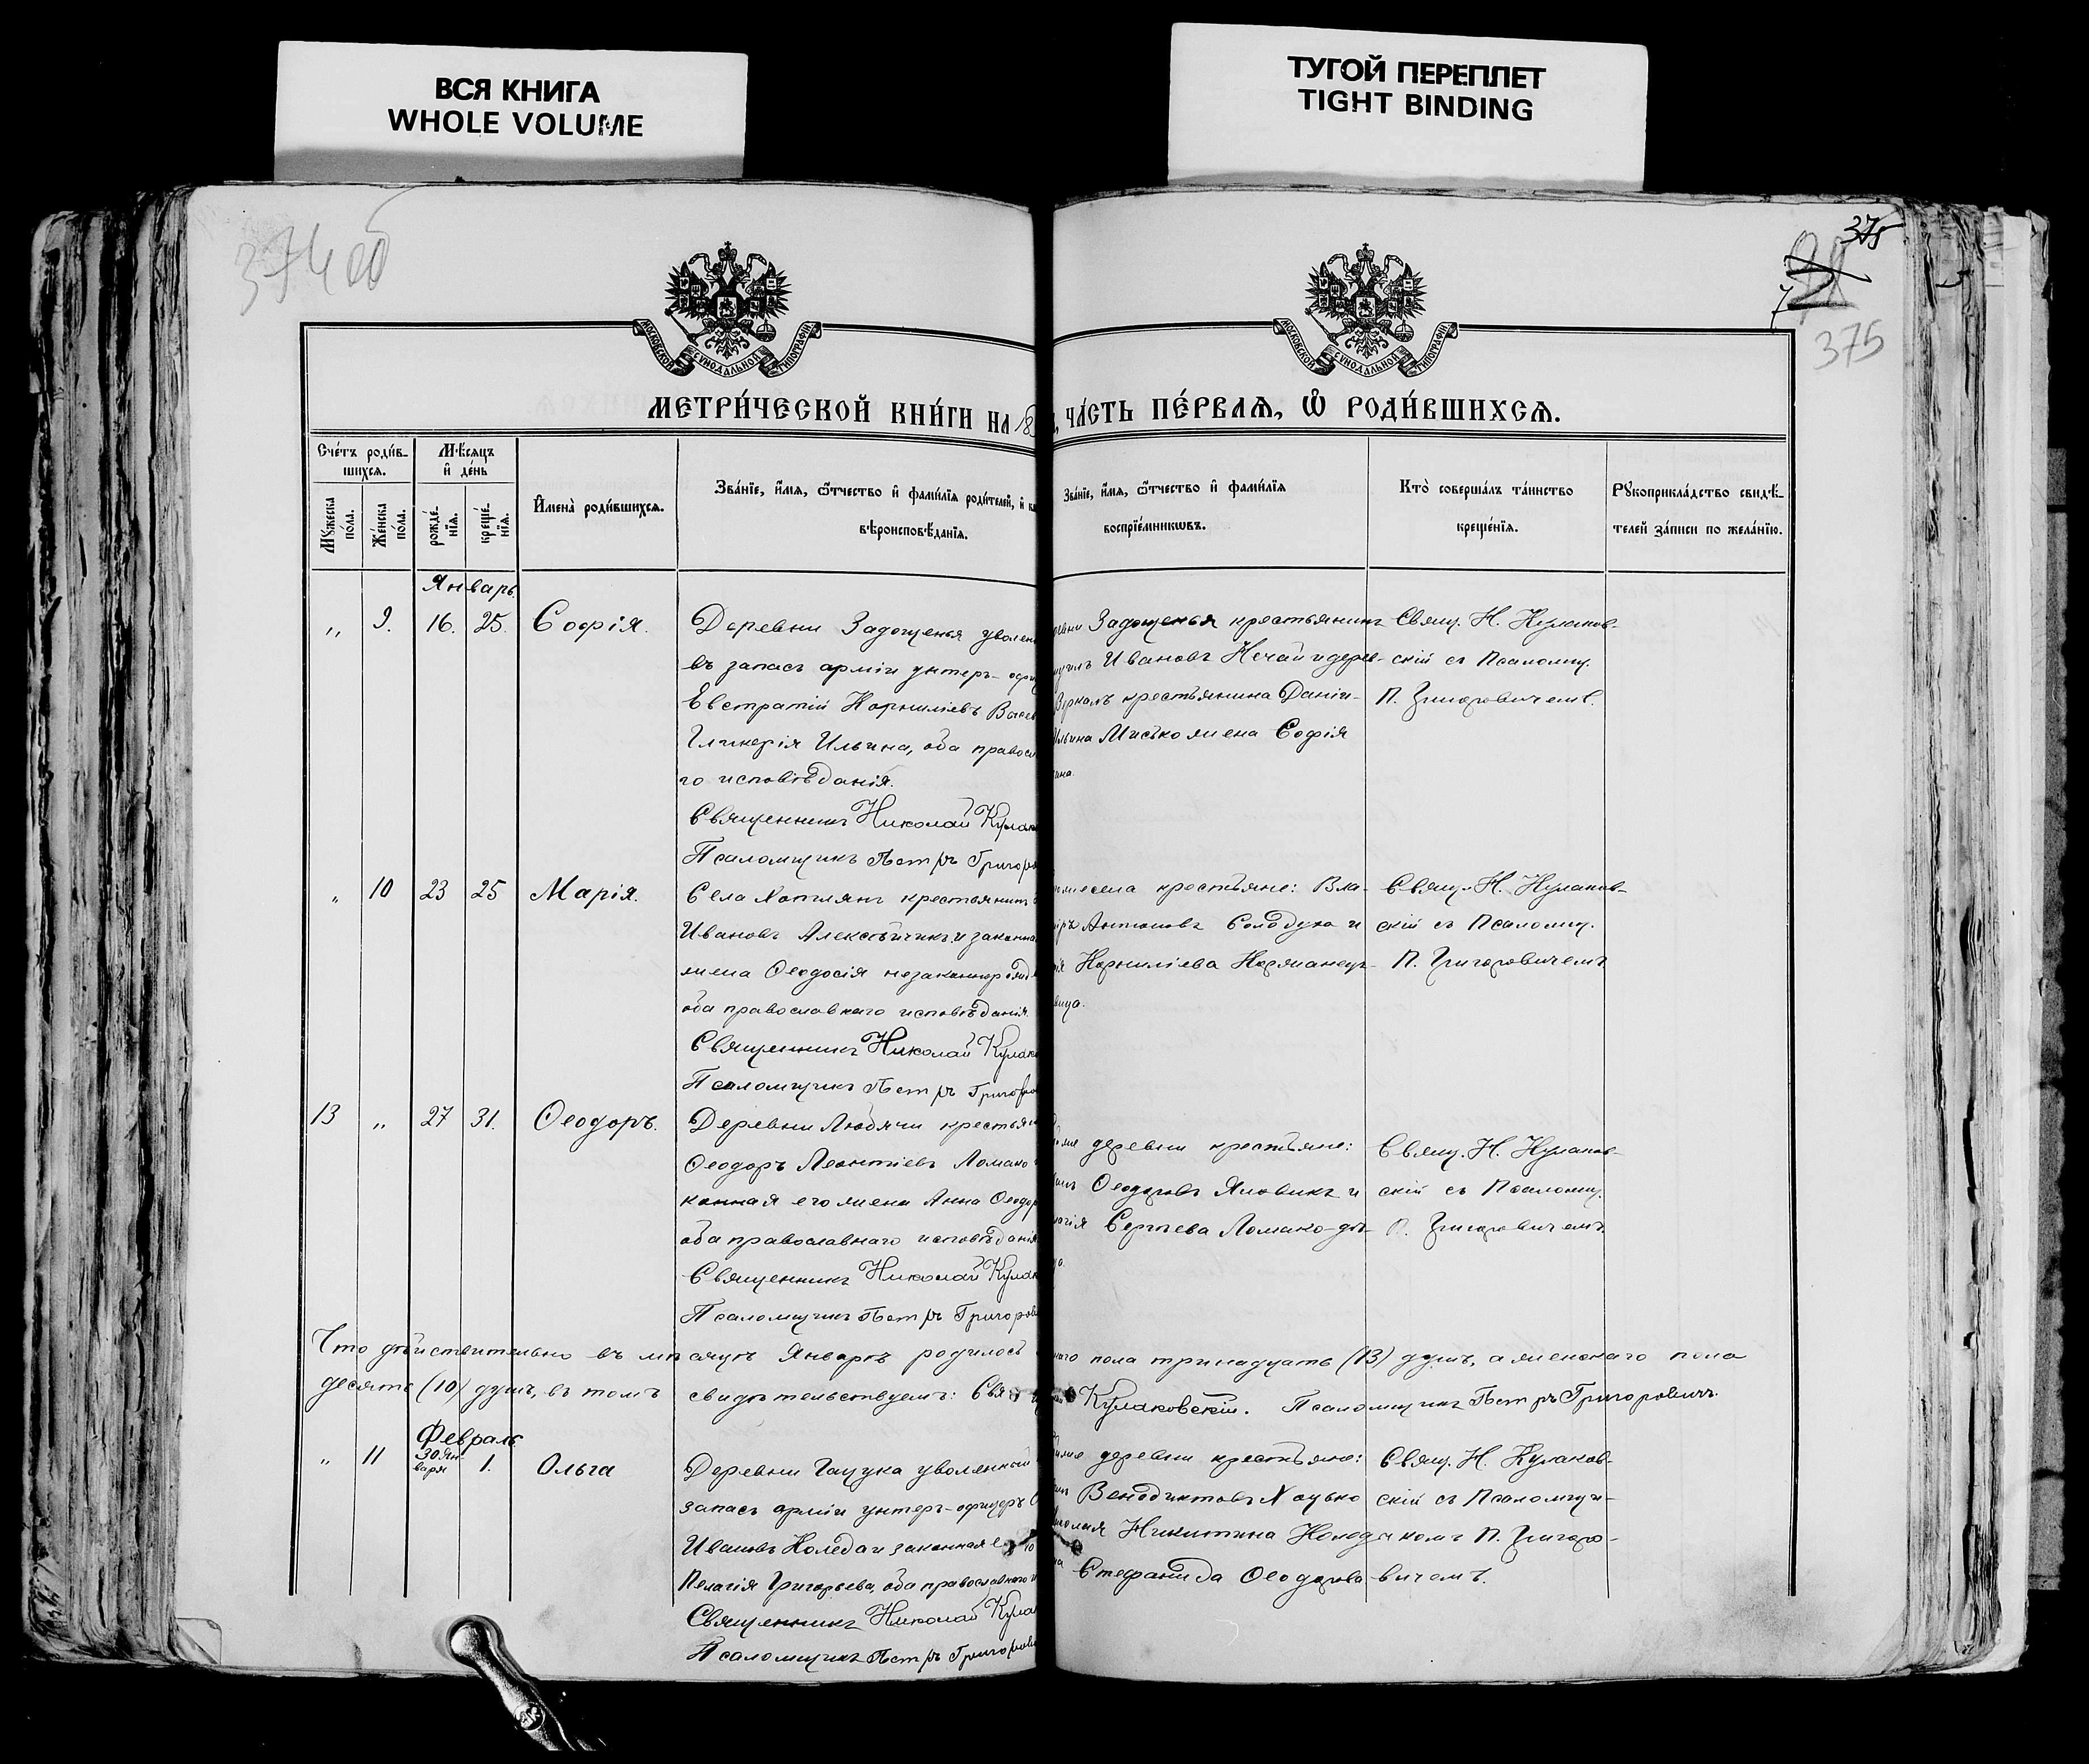 ВСЯ КНИГА
WHOLE VOLUME
ТУГОЙ ПЕРЕПЛЕТ
TIGHT BINDING
374 об
375
375
МОСКОВСКОЙ СѴНОДАЛЬНОЙ ТИПОГРАФІИ
МОСКОВСКОЙ СѴНОДАЛЬНОЙ ТИПОГРАФІИ
МЕТРИ́ЧЕСКОЙ КНИ́ГИ НА 18
ЧА́СТЬ ПЕ́РВАѦ, Ѽ РОДИ́ВШИХСѦ.
Сче́тъ роди́в-
шихсѧ.
Мꙋ́жеска
по́ла.
Же́нска
по́ла.
Мѣ́сѧцъ
и҆ де́нь
рожде́-
нїѧ.
креще́-
нїѧ.
И҆мена̀ роди́вшихсѧ.
Зва́нїе, и҆́мѧ, ѻ҆́тчество и҆ фами́лїѧ роди́телей, и҆
вѣроисповѣ́данїѧ.
Зва́нїе, и҆́мѧ, ѻ҆́тчество и҆ фами́лїѧ
воспрїе́мникѡвъ.
Кто̀ соверша́лъ та́инство
креще́нїѧ.
Рꙋкоприкла́дство свидѣ́-
телей за́писи по жела́нїю.
Январь.
" 9. 16. 25. Софія.
Деревни Задощенья уволен
въ запасъ арміи унтеръ-офи
Евстратій Корниліевъ
Гликерія Ильина, оба правосл
го исповѣданія.
Священникъ Николай Кулак
Псаломщикъ Петръ Григоро
Задощенья крестьянинъ
Ивановъ Нечай и дерев-
крестьянина Даніи-
Мисько жена Софія
Свящ. Н. Кулаков-
скій съ Псаломщ.
П. Григоровичемъ.
" 10 23 25 Марія.
Села Хотлянъ крестьянинъ
Ивановъ Алексѣйчикъ и законна
жена Ѳеодосія незаконнорожд
оба православнаго исповѣданія.
Священникъ Николай Кулак
Псаломщикъ Петръ Григоро
села крестьяне: Вла-
Антоновъ Солодуха и
Корниліева
вица.
Свящ. Н. Кулаков-
скій съ Псаломщ.
П. Григоровичемъ
13 " 27 31. Ѳеодоръ.
Деревни Любячи крестья
Ѳеодоръ Леонтіевъ Ломако
конная его жена Анна Ѳеодор
оба православнаго исповѣданія
Священникъ Николай Кулак
Псаломщикъ Петръ Григоров
деревни крестьяне:
Ѳеодоровъ Яловикъ и
Сергѣева Ломако-дѣ-
Свящ. Н. Кулаков-
скій съ Псаломщ.
П. Григоровичемъ.
Что дѣйствительно въ мѣсяцѣ Январѣ родилось
пола тринадцать (13) душъ, а женскаго пола
десять (10) душъ, въ томъ свидѣтельствуемъ: Свя
Кулаковскій. Псаломщикъ Петръ Григоровичъ.
Февраль
" 11 30 Ян-
варя 1. Ольга
Деревни Гацука уволенный
запасъ арміи унтеръ-офицеръ
Ивановъ Коледа и законная е
Пелагія Григорьева, оба православнаго
Священникъ Николай Кулак
Псаломщикъ Петръ Григоров
деревни крестьяне:
Венедиктовъ Хоцько
Никитина Коледа
Стефанида Ѳеодорова
Свящ. Н. Кулаков-
скій съ Псаломщи-
комъ П. Григоро-
вичемъ.